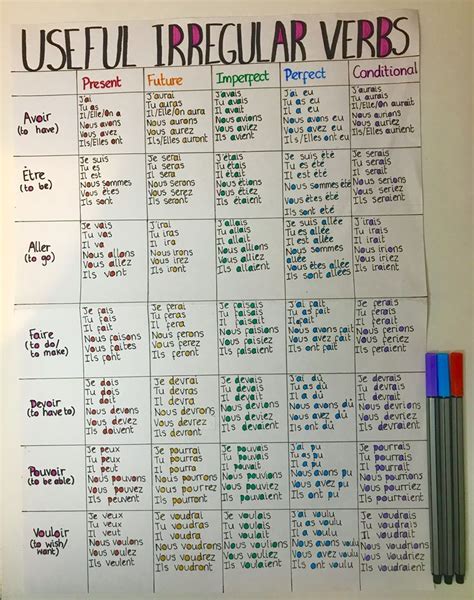 USEFUL IRREGULAR VERBS
Present
Future
Imperfect
Perfect
Conditional
Avoir
(to have)
J'ai
Tu as
Il/Elle/On a
Nous avons
Vous avez
Ils/Elles ont
J'aurai
Tu auras
Il/Elle/On aura
Nous aurons
Vous aurez
Ils/Elles auront
J'avais
Tu avais
Il avait
Nous avions
Vous aviez
Ils avaient
J'ai eu
Tu as eu
Il a eu
Nous avons eu
Vous avez eu
Ils/Elles ont eu
J'aurais
Tu aurais
Il/Elle/On aurait
Nous aurions
Vous auriez
Ils/Elles aurient
Être
(to be)
Je suis
Tu es
Il est
Nous sommes
Vous êtes
Ils sont
Je serai
Tu seras
Il sera
Nous serons
Vous serez
Ils seront
J'étais
Tu étais
Il était
Nous étions
Vous étiez
Ils étaient
Je suis été
Tu es été
Il est été
Nous sommes été
Vous êtes été
Ils sont été
Je serais
Tu serais
Il serait
Nous serions
Vous seriez
Ils seraient
Aller
(to go)
Je vais
Tu vas
Il va
Nous allons
Vous allez
Ils vont
J'irai
Tu iras
Il ira
Nous irons
Vous irez
Ils iront
J'allais
Tu allais
Il allait
Nous allions
Vous alliez
Ils allaient
Je suis allée
Tu es allée
Il est allée
Nous sommes
allée
Vous êtes allée
Ils sont allée
J'irais
Tu irais
Il irait
Nous irions
Vous iriez
Ils iraient
Faire
(to do/
to make)
Je fais
Tu fais
Il fait
Nous faisons
Vous faites
Ils font
Je ferai
Tu feras
Il fera
Nous ferons
Vous ferez
Ils feront
Je faisais
Tu faisais
Il faisait
Nous faisions
Vous faisiez
Ils faisaient
J'ai fait
Tu as fait
Il a fait
Nous avons fait
Vous avez fait
Ils ont fait
Je ferais
Tu ferais
Il ferait
Nous ferions
Vous feriez
Ils feraient
Devoir
(to have to)
Je dois
Tu dois
Il doit
Nous devons
Vous devez
Ils doivent
Je devrai
Tu devras
Il devra
Nous devrons
Vous devrez
Ils devront
Je devais
Tu devais
Il devait
Nous devions
Vous deviez
Ils devaient
J'ai dû
Tu as dû
Il a dû
Nous avons dû
Vous avez dû
Ils ont dû
Je devrais
Tu devrais
Il devrait
Nous devrions
Vous devriez
Ils devraient
Pouvoir
(to be able)
Je peux
Tu peux
Il peut
Nous pouvons
Vous pouvez
Ils peuvent
Je pourrai
Tu pourras
Il pourra
Nous pourrons
Vous pourrez
Ils pourront
Je pouvais
Tu pouvais
Il pouvait
Nous pouvions
Vous pouviez
Ils pouvaient
J'ai pu
Tu as pu
Il a pu
Nous avons pu
Vous avez pu
Ils ont pu
Je pourrais
Tu pourrais
Il pourrait
Nous pourrions
Vous pourriez
Ils pourraient
Vouloir
(to wish/
want)
Je veux
Tu veux
Il veut
Nous voulons
Vous voulez
Ils veulent
Je voudrai
Tu voudras
Il voudra
Nous voudrons
Vous voudrez
Ils voudront
Je voulais
Tu voulais
Il voulait
Nous voulions
Vous vouliez
Ils voulaient
J'ai voulu
Tu as voulu
Il a voulu
Nous avons voulu
Vous avez voulu
Ils ont voulu
Je voudrais
Tu voudrais
Il voudrait
Nous voudrions
Vous voudriez
Ils voudraient